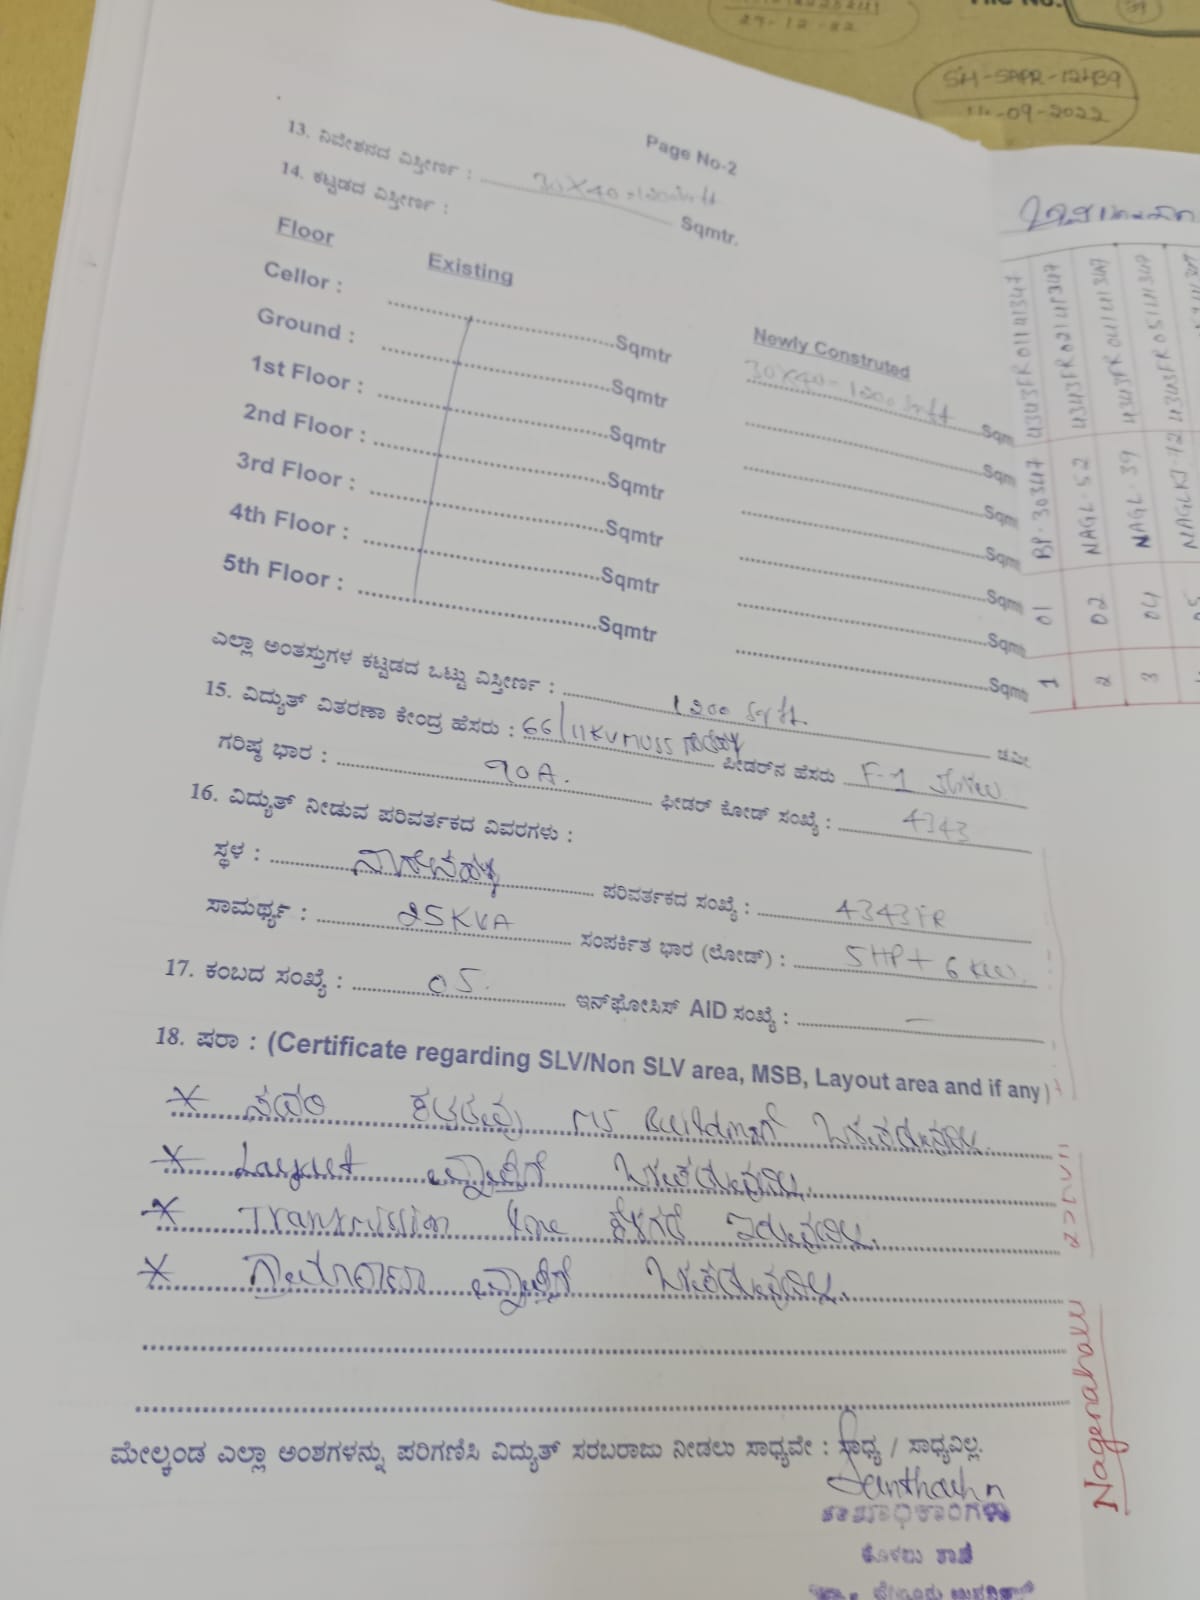 29-12-22
File No.
SH-SPPR-12489
11-09-2022
Page No-2
13. ನಿವೇಶನದ ವಿಸ್ತೀರ್ಣ : 30X40=1200Sqft Sqmtr.
14. ಕಟ್ಟಡದ ವಿಸ್ತೀರ್ಣ :
Floor Existing Newly Constructed
Cellor : Sqmtr 30X40=1200 Sqft Sqm
Ground : Sqmtr Sqm
1st Floor : Sqmtr Sqm
2nd Floor : Sqmtr Sqm
3rd Floor : Sqmtr Sqmt
4th Floor : Sqmtr Sqmt
5th Floor : Sqmtr Sqmt
ಎಲ್ಲಾ ಅಂತಸ್ತುಗಳ ಕಟ್ಟಡದ ಒಟ್ಟು ವಿಸ್ತೀರ್ಣ : 1200 Sqft. ಚ.ಮೀ
15. ವಿದ್ಯುತ್ ವಿತರಣಾ ಕೇಂದ್ರ ಹೆಸರು : 66/11KV MUSS ಫೀಡರ್‌ನ ಹೆಸರು F-1
ಗರಿಷ್ಠ ಭಾರ : 90A. ಫೀಡರ್ ಕೋಡ್ ಸಂಖ್ಯೆ : 4343
16. ವಿದ್ಯುತ್ ನೀಡುವ ಪರಿವರ್ತಕದ ವಿವರಗಳು :
ಸ್ಥಳ : ನಾಗೇನಹಳ್ಳಿ ಪರಿವರ್ತಕದ ಸಂಖ್ಯೆ : 4343FR
ಸಾಮರ್ಥ್ಯ : 25KVA ಸಂಪರ್ಕಿತ ಭಾರ (ಲೋಡ್) : 5HP + 6 KW.
17. ಕಂಬದ ಸಂಖ್ಯೆ : 05. ಇನ್‌ಫೋಸಿಸ್ AID ಸಂಖ್ಯೆ : —
18. ಷರಾ : (Certificate regarding SLV/Non SLV area, MSB, Layout area and if any)
* ಸದರಿ ಕಟ್ಟಡವು MS Building ಒಳಪಡುವುದಿಲ್ಲ.
* Layout ವ್ಯಾಪ್ತಿಗೆ ಒಳಪಡುವುದಿಲ್ಲ.
* Transmission line ಕೆಳಗಡೆ ಇರುವುದಿಲ್ಲ.
* ಗ್ರಾಮಠಾಣಾ ವ್ಯಾಪ್ತಿಗೆ ಒಳಪಡುವುದಿಲ್ಲ.
ಮೇಲ್ಕಂಡ ಎಲ್ಲಾ ಅಂಶಗಳನ್ನು ಪರಿಗಣಿಸಿ ವಿದ್ಯುತ್ ಸರಬರಾಜು ನೀಡಲು ಸಾಧ್ಯವೇ : ಸಾಧ್ಯ / ಸಾಧ್ಯವಿಲ್ಲ.
ಶಾಖಾಧಿಕಾರಿಗಳು
1 01 BP-30347 4343FR01141347
2 02 NAGL-52 4343FR02141347
3 04 NAGL-39 4343FR04141347
Nagenahalli